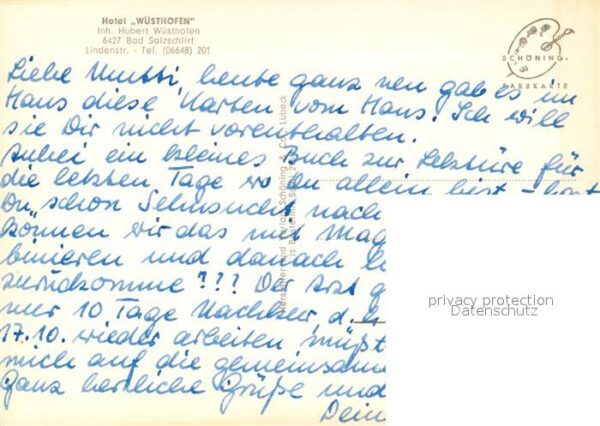 Hotel „WÜSTHOFEN"
Inh. Hubert Wüsthofen
6427 Bad Salzschlirf
Lindenstr. - Tel. (06648) 201
SCHÖNING-
FARBKARTE
Liebe Mutti, heute ganz neu gab es im
Haus diese Karten vom Haus! Ich will
sie Dir nicht vorenthalten.
Anbei ein kleines Buch zur Lektüre für
die letzten Tage wo Du allein bist - hast
Du schon Sehnsucht nach
können wir das mit Mag
binieren und danach
zurückkomme??? Der Arzt g
nur 10 Tage Nachkur, d.
17.10. wieder arbeiten müßt
mich auf die gemeinsame
Ganz herzliche Grüße und
Dein
Schöning & Co., Lübeck
privacy protection
Datenschutz